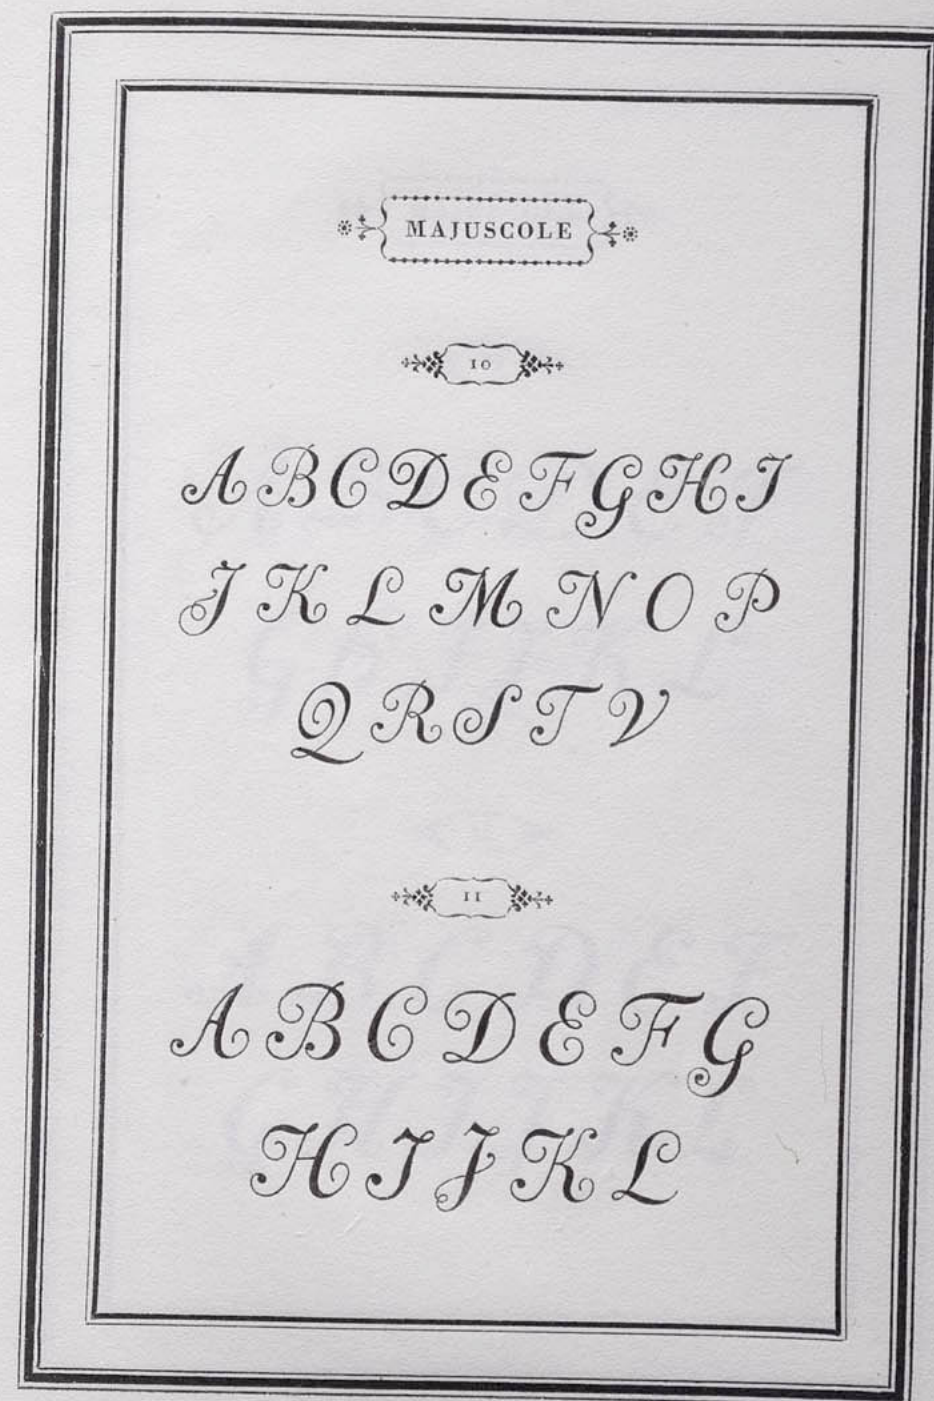 MAJUSCOLE
10
A B C D E F G H I
J K L M N O P
Q R S T V
11
A B C D E F G
H I J K L